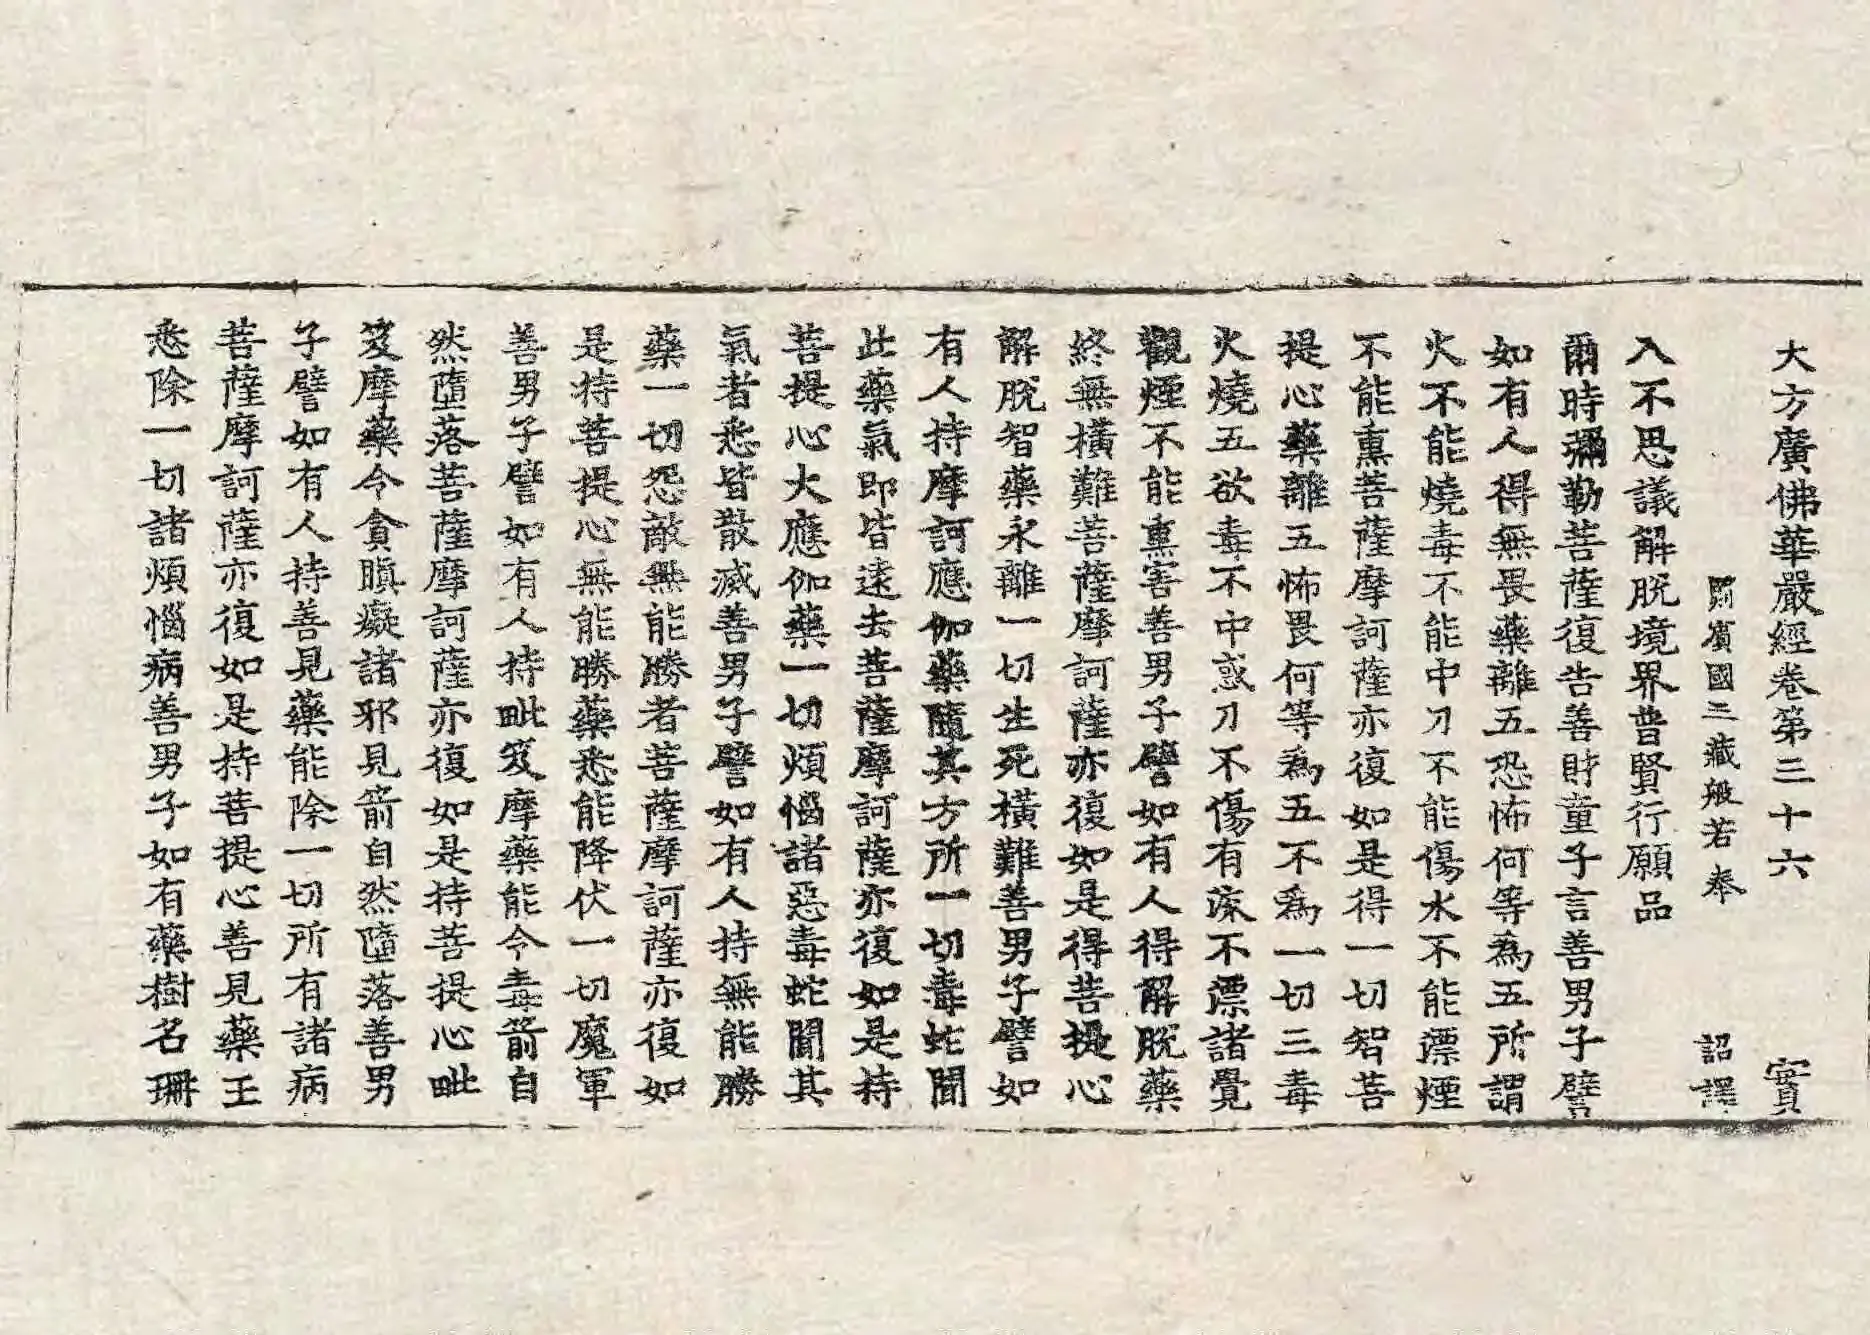 大方廣佛華嚴經卷第三十六 寳
罽賓國三藏般若奉 詔譯
入不思議解脫境界普賢行願品
爾時彌勒菩薩復告善財童子言善男子譬
如有人得無畏藥離五恐怖何等為五所謂
火不能燒毒不能中刀不能傷水不能漂煙
不能熏菩薩摩訶薩亦復如是得一切智菩
提心藥離五怖畏何等為五不為一切三毒
火燒五欲毒不中惑刀不傷有流不漂諸覺
觀煙不能熏害善男子譬如有人得解脫藥
終無橫難菩薩摩訶薩亦復如是得菩提心
解脫智藥永離一切生死橫難善男子譬如
有人持摩訶應伽藥隨其方所一切毒蛇聞
此藥氣即皆遠去菩薩摩訶薩亦復如是持
菩提心大應伽藥一切煩惱諸惡毒蛇聞其
氣者悉皆散滅善男子譬如有人持無能勝
藥一切怨敵無能勝者菩薩摩訶薩亦復如
是持菩提心無能勝藥悉能降伏一切魔軍
善男子譬如有人持毗笈摩藥能令毒箭自
然墮落菩薩摩訶薩亦復如是持菩提心毗
笈摩藥令貪瞋癡諸邪見箭自然墮落善男
子譬如有人持善見藥能除一切所有諸病
菩薩摩訶薩亦復如是持菩提心善見藥王
悉除一切諸煩惱病善男子如有藥樹名珊